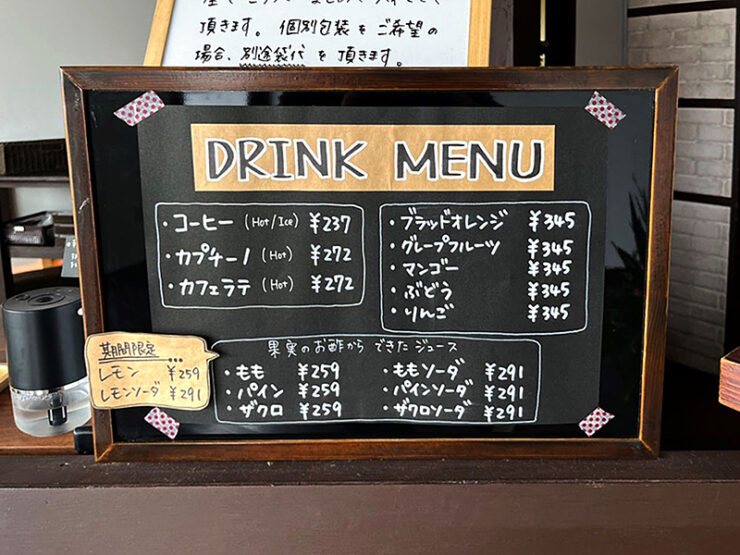 頂きます。 個別包装をご希望の
場合、別途袋代を頂きます。
DRINK MENU
・コーヒー (Hot/Ice) ¥237
・カプチーノ (Hot) ¥272
・カフェラテ (Hot) ¥272
・ブラッドオレンジ ¥345
・グレープフルーツ ¥345
・マンゴー ¥345
・ぶどう ¥345
・りんご ¥345
期間限定...
レモン ¥259
レモンソーダ ¥291
果実のお酢からできたジュース
・もも ¥259
・パイン ¥259
・ザクロ ¥259
・ももソーダ ¥291
・パインソーダ ¥291
・ザクロソーダ ¥291